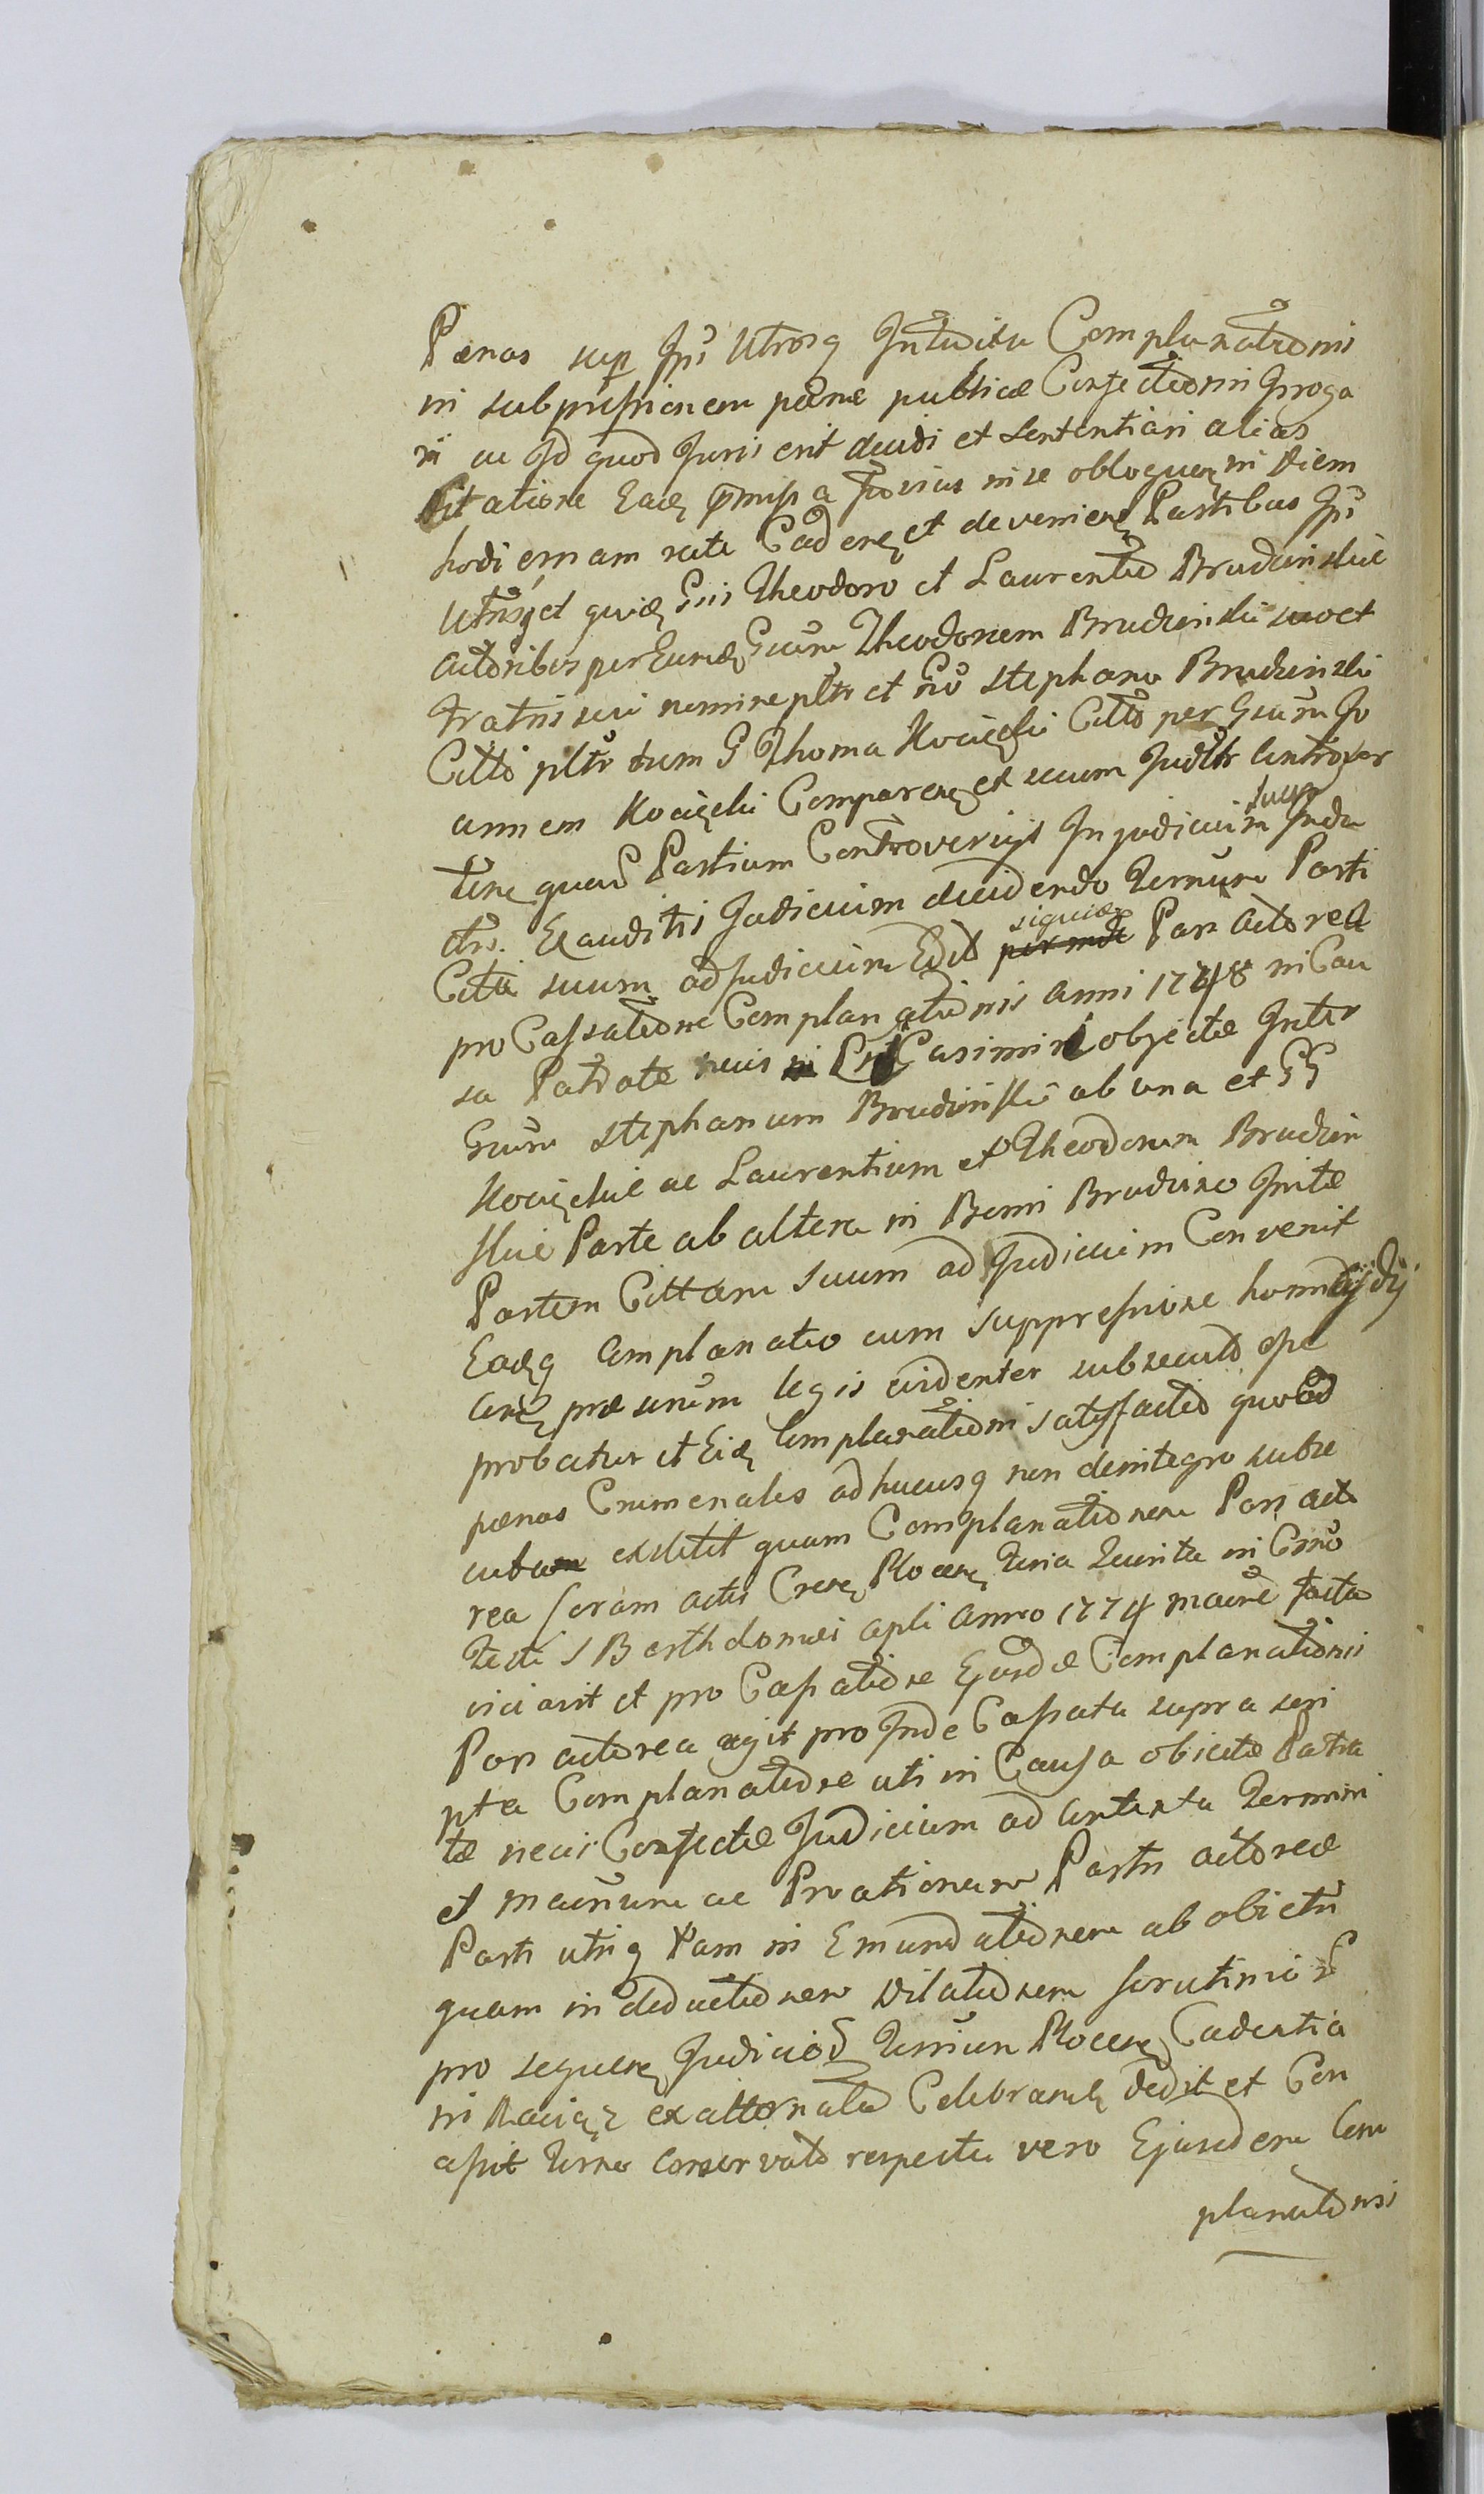 Pœnas sup Jpi Utrosq Intuitu Complanationis
in subprehsionem pœnæ publicæ Confectionin Irroga
ri ac Id quod Juris erit decidi et sententiari alias
Citatione Eadẽ præmissa fusius in se obloquen in Diem
hodiernam rate Caden et devenien Partibus Jpi
Utrisq et quidẽ Gsis Theodoro et Laurentio Brudzinskie
Actoribus per Eundẽ Gsum Theodorum Brudzinski suo et
Fratris sui nomine pltr et Gso Stephano Brudzinski
Citto pltr tum G Thoma Kocięcki Citto per Gsum Jo
annem Kocięcki Comparen et suum Judltr Controver
ten quarũ Partium Controversijs In judicium suum Indu
ctis. Exauditis Judicium decidendo Ternum Parti
Cittæ suum ad Judicium Edit siquidẽ Pars Actorea
pro Cassatione Complanationis Anni 1748 in Cau
sa Patratæ necis Casimiri objectæ Inter
Gsum Stephanum Brudzinski ab una et GG
Kocięckie ac Laurentium et Theodorum Brudzin
skie Parte ab altera in Bonis Brudzino Initæ
Partem Cittam suum ad Judicium Convenit
Eadẽq Complanatio cum suppressione homicidij
Contr præscriptum legis evidenter subsecuta esse
probatur et Eidẽ Complanationi satisfactio quoad
pœnas Crimenales adhucusq non deintegro subse
cuta exstitit quam Complanationem Pars Acto
rea Coram Actis Cresẽ Plocen Feria Quinta in Csno
Festi S Bartholomæi Apli Anno 1774 Manife facta
viciavit et pro Cassatione Ejusdẽ Complanationis
Pars Actorea agit pro Inde Cassata supra scri
pta Complanatione uti in Causa obictæ Patra
tæ necis Confectæ Judicium ad Contenta Termini
et Manifum ac Proationem Partis Actoreæ
Parti utriq tam in Emundationem ab obictis
quam in deductionem Dilationem Scrutinior
pro sequen Judicior Terrium Plocen Cadentia
in Raciąz ex alternata Celebrandẽ Dedit et Con
cessit Terno Conservato respectu vero Ejusdem Com
planationis